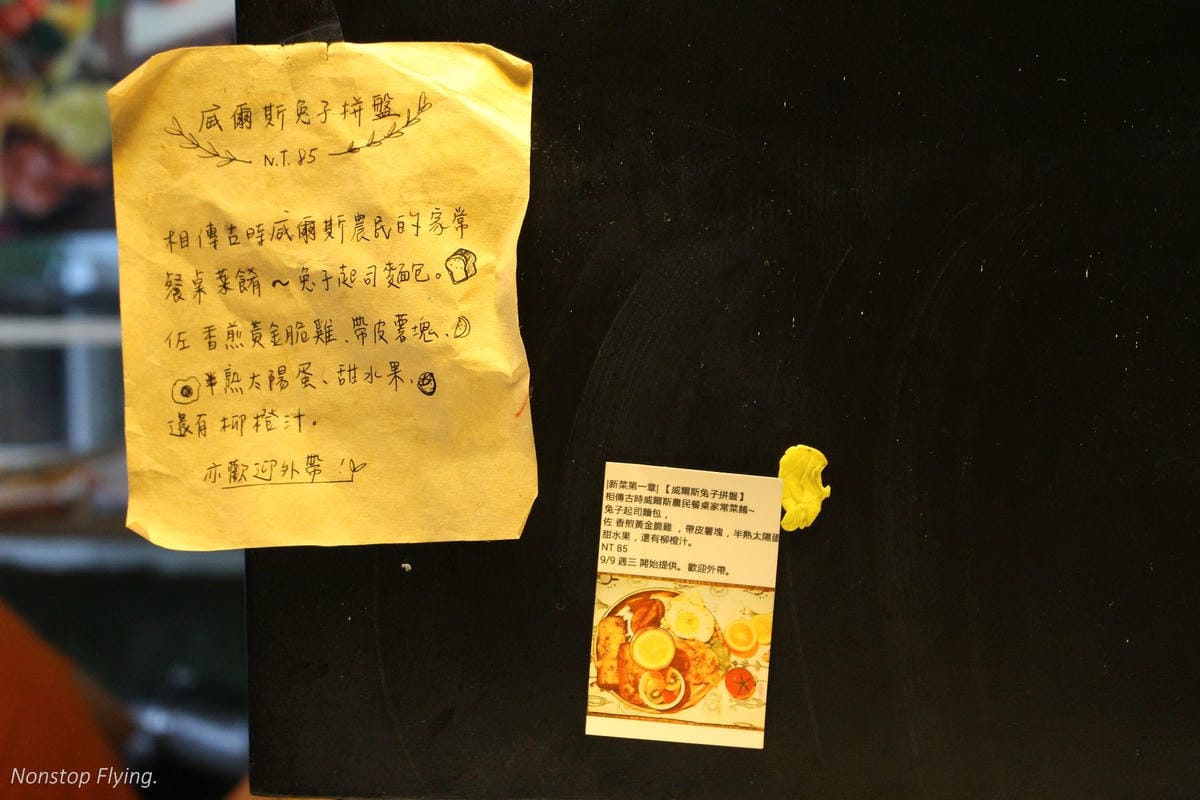 威爾斯兔子拼盤
N.T. 85
相傳古時威爾斯農民的家常
餐桌菜餚～兔子起司麵包。
佐香煎黃金脆雞、帶皮薯塊、
半熟太陽蛋、甜水果、
還有柳橙汁。
亦歡迎外帶!
|新菜第一章|【威爾斯兔子拼盤】
相傳古時威爾斯農民餐桌家常菜餚~
兔子起司麵包，
佐 香煎黃金脆雞 ，帶皮薯塊，半熟太陽蛋
甜水果，還有柳橙汁。
NT 85
9/9 週三 開始提供。 歡迎外帶。
Nonstop Flying.